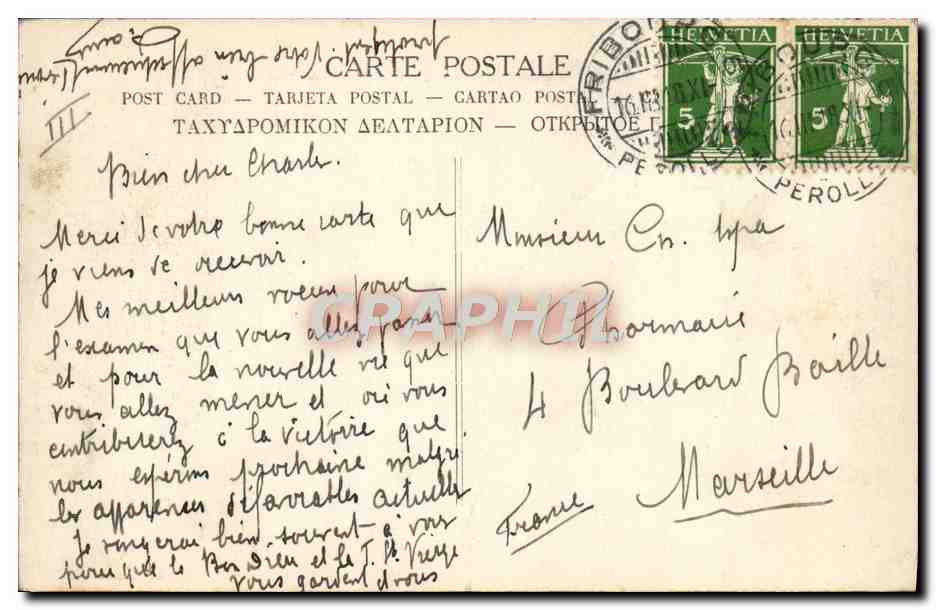 CARTE POSTALE
POST CARD — TARJETA POSTAL — CARTAO POSTAL
ΤΑΧΥΔΡΟΜΙΚΟΝ ΔΕΛΤΑΡΙΟΝ — ОТКРЫТОЕ
III
HELVETIA HELVETIA
5 5
FRIBOURG
PEROLLES
Bien cher Charles.
Merci de votre bonne carte que
je viens de recevoir.
Mes meilleurs voeux pour
l'examen que vous allez passer
et pour la nouvelle vie que
vous allez mener et où vous
contribuerez à la victoire que
nous espérons prochaine malgré
les apparences défavorables actuelles
Je songerai bien souvent à vous
pour que le Bon Dieu et la T. Ste Vierge
vous gardent et vous
protègent. Votre bien affectueusement
Monsieur Ch. 
Pharmacie
4 Boulevard Baille
Marseille
France
CARTE POSTALE
GRAPHIL